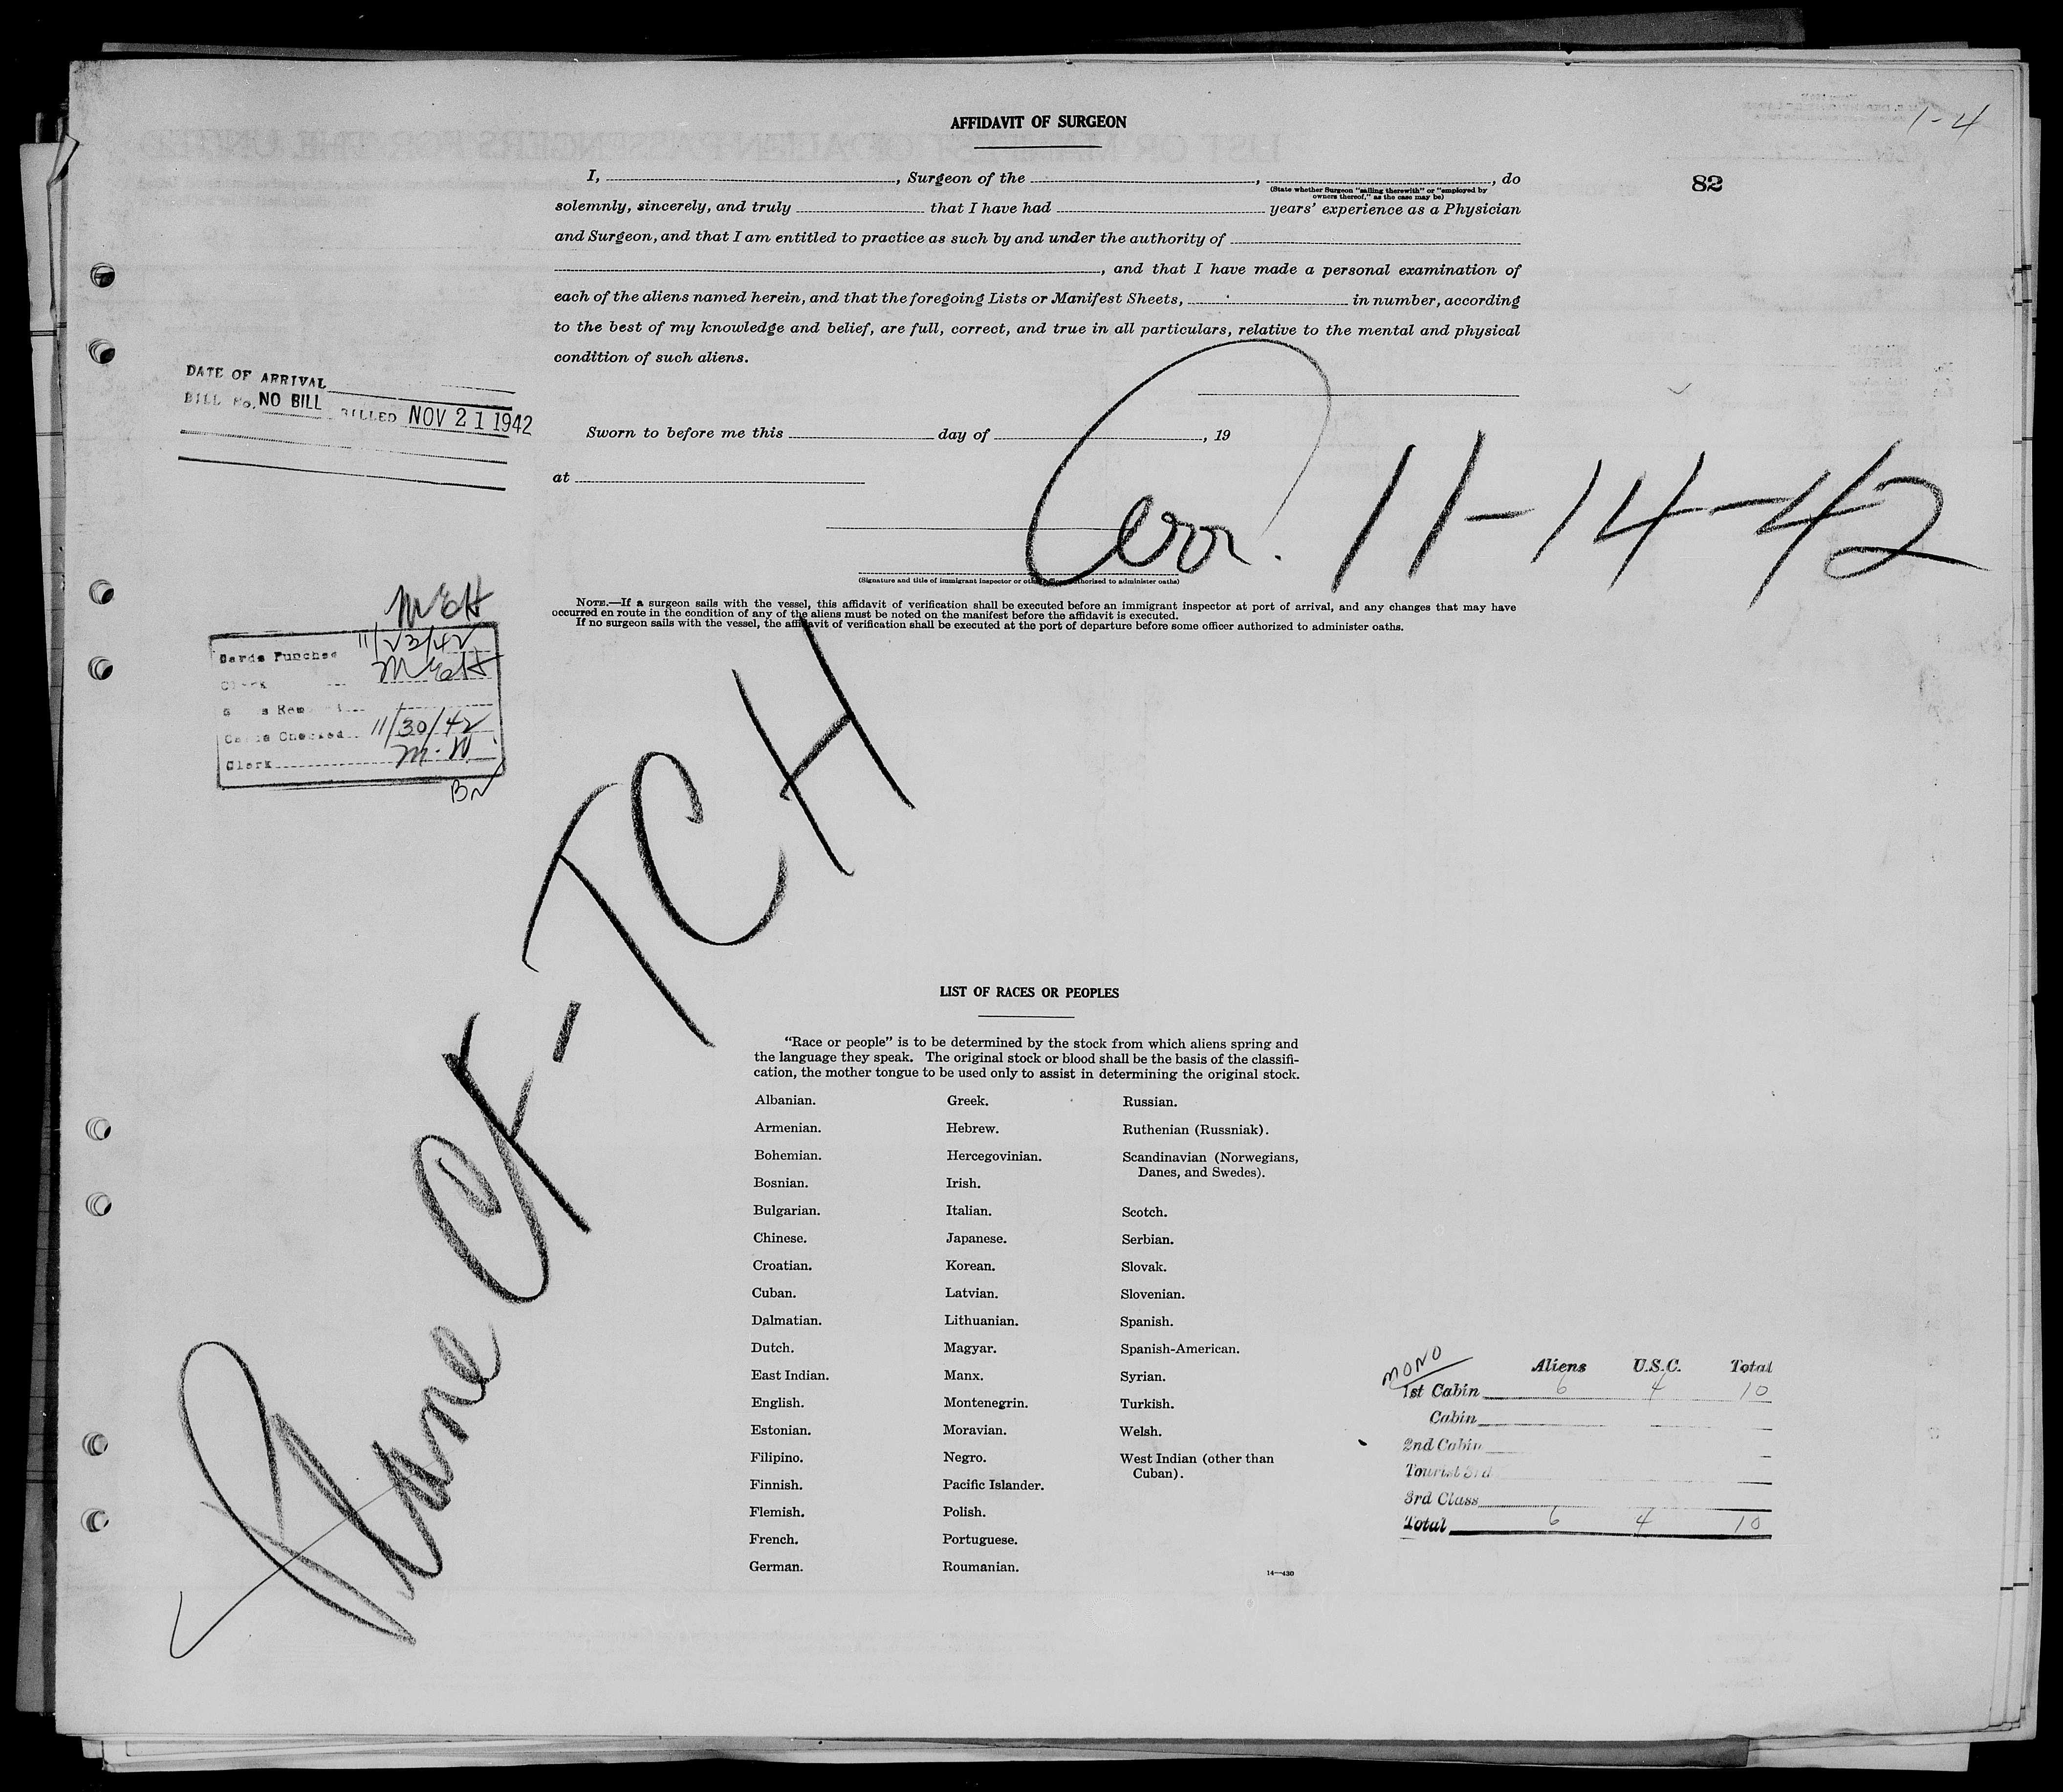 AFFIDAVIT OF SURGEON
1-4
82
I, , Surgeon of the , , do
(State whether Surgeon "sailing therewith" or "employed by
owners thereof," as the case may be)
solemnly, sincerely, and truly that I have had years' experience as a Physician
and Surgeon, and that I am entitled to practice as such by and under the authority of
, and that I have made a personal examination of
each of the aliens named herein, and that the foregoing Lists or Manifest Sheets, in number, according
to the best of my knowledge and belief, are full, correct, and true in all particulars, relative to the mental and physical
condition of such aliens.
DATE OF ARRIVAL
BILL No. NO BILL BILLED NOV 21 1942
Sworn to before me this day of , 19
at
Arr. 11-14-42
(Signature and title of immigrant inspector or other officer authorized to administer oaths)
NOTE.—If a surgeon sails with the vessel, this affidavit of verification shall be executed before an immigrant inspector at port of arrival, and any changes that may have
occurred en route in the condition of any of the aliens must be noted on the manifest before the affidavit is executed.
If no surgeon sails with the vessel, the affidavit of verification shall be executed at the port of departure before some officer authorized to administer oaths.
MEH
Cards Punched 11/23/42
Clerk MEH
Cards Checked 11/30/42
Clerk M.W.
BN
Plane CF-TCH
LIST OF RACES OR PEOPLES
"Race or people" is to be determined by the stock from which aliens spring and
the language they speak. The original stock or blood shall be the basis of the classifi-
cation, the mother tongue to be used only to assist in determining the original stock.
Albanian.
Armenian.
Bohemian.
Bosnian.
Bulgarian.
Chinese.
Croatian.
Cuban.
Dalmatian.
Dutch.
East Indian.
English.
Estonian.
Filipino.
Finnish.
Flemish.
French.
German.
Greek.
Hebrew.
Hercegovinian.
Irish.
Italian.
Japanese.
Korean.
Latvian.
Lithuanian.
Magyar.
Manx.
Montenegrin.
Moravian.
Negro.
Pacific Islander.
Polish.
Portuguese.
Roumanian.
Russian.
Ruthenian (Russniak).
Scandinavian (Norwegians,
Danes, and Swedes).
Scotch.
Serbian.
Slovak.
Slovenian.
Spanish.
Spanish-American.
Syrian.
Turkish.
Welsh.
West Indian (other than
Cuban).
14—430
MONO
Aliens U.S.C. Total
1st Cabin 6 4 10
Cabin
2nd Cabin
Tourist 3rd
3rd Class
Total 6 4 10